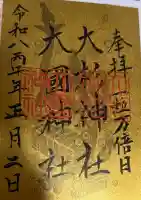 奉拝 一粒万倍日
大杉神社
大國神社
令和八丙午年正月二日